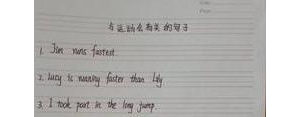 与运动会有关的句子
1. Jim runs fastest.
2. lucy is running faster than lily
3. I took part in the long jump.